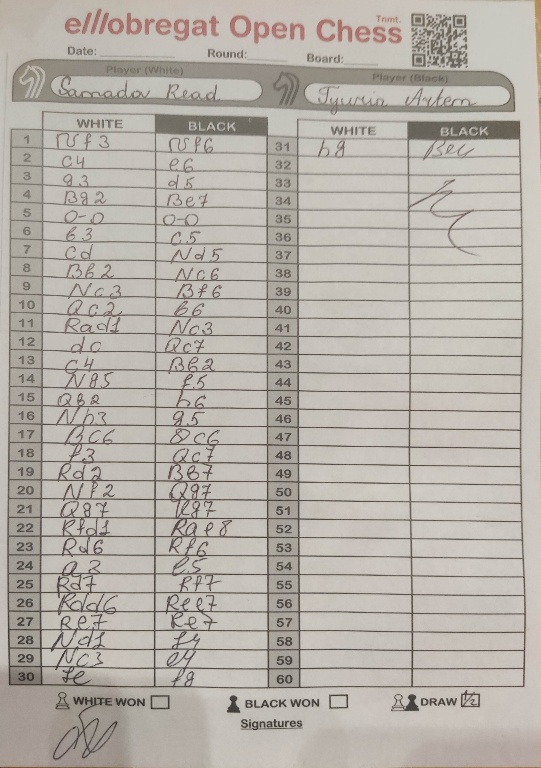 ellobregat Open Chess Tnmt.
Date: Round: Board:
Player (White) Player (Black)
Samadov Read Tyurin Artem
WHITE BLACK
1 Nf3 Nf6
2 c4 e6
3 g3 d5
4 Bg2 Be7
5 0-0 0-0
6 b3 c5
7 cd Nd5
8 Bb2 Nc6
9 Nc3 Bf6
10 Qc2 b6
11 Rad1 Nc3
12 dc Qc7
13 c4 Bb2
14 Ng5 f5
15 Qb2 h6
16 Nh3 g5
17 Bc6 Qc6
18 f3 Qc7
19 Rd2 Bb7
20 Nf2 Qg7
21 Qg7 Kg7
22 Rfd1 Rae8
23 Rd6 Rf6
24 a2 e5
25 Rd7 Rf7
26 Rdd6 Ree7
27 Re7 Re7
28 Nd1 f4
29 Nc3 e4
30 fe fg
WHITE BLACK
31 hg Be4
32
33
34
35
36
37
38
39
40
41
42
43
44
45
46
47
48
49
50
51
52
53
54
55
56
57
58
59
60
WHITE WON BLACK WON DRAW 1/2
Signatures